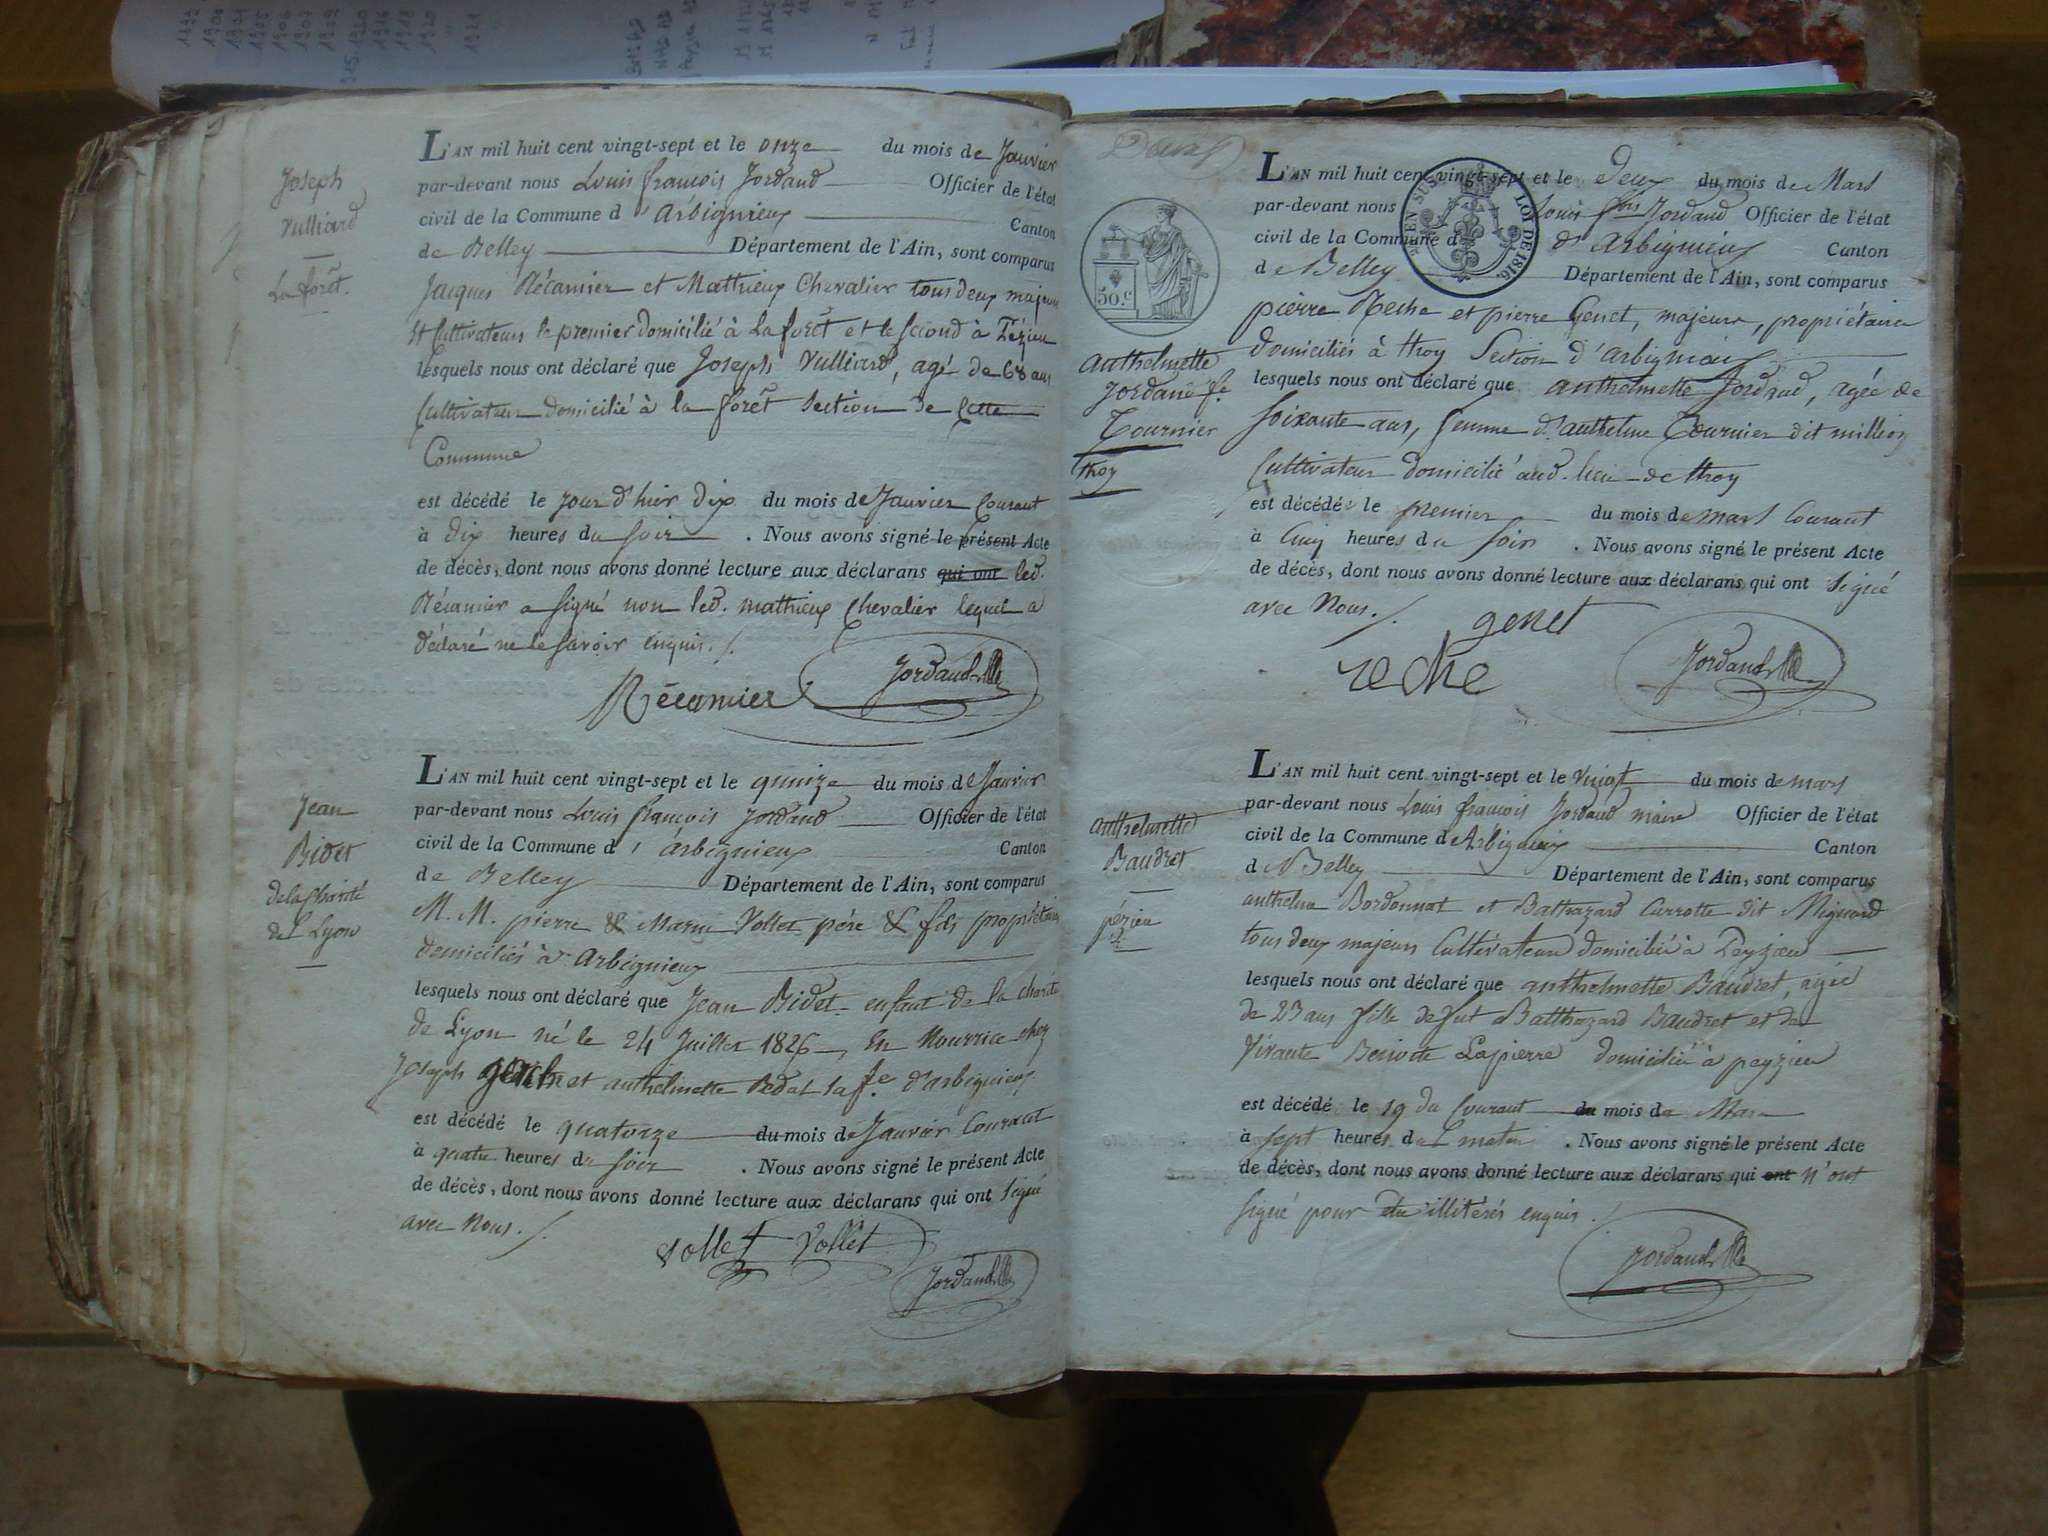 Joseph
Vulliard
La forêt.
L'AN mil huit cent vingt-sept et le onze du mois de Janvier
par-devant nous Louis françois Jordand Officier de l'état
civil de la Commune d'Arbignieux Canton
de Belley Département de l'Ain, sont comparus
Jacques Récamier et Mathieux Chevalier tous deux majeurs
et Cultivateurs le premier domicilié à La forêt et le second à Pézieu
lesquels nous ont déclaré que Joseph Vulliard, agé de 68 ans
Cultivateur domicilié à la forêt Section de Cette
Commune
est décédé le jour d'hier dix du mois de Janvier Courant
à dix heures du soir. Nous avons signé le présent Acte
de décès, dont nous avons donné lecture aux déclarans qui ont led.
Récamier a signé non led. mathieux Chevalier lequel a
déclaré ne le savoir enquis./.
Récamier Jordand
Jean
Bidet
de la Charité
de Lyon
L'AN mil huit cent vingt-sept et le quinze du mois de Janvier
par-devant nous Louis françois Jordand Officier de l'état
civil de la Commune d'Arbignieux Canton
de Belley Département de l'Ain, sont comparus
M. M. pierre & Marin Vollet père & fils propriétaires
domiciliés à Arbignieux
lesquels nous ont déclaré que Jean Bidet enfant de la charité
de Lyon né le 24 Juillet 1826, En Nourrice chez
Joseph et anthelmette Bedat sa fe. d'arbignieux
est décédé le quatorze du mois de Janvier Courant
à quatre heures du soir. Nous avons signé le présent Acte
de décès, dont nous avons donné lecture aux déclarans qui ont signé
avec Nous./.
Vollet Vollet
Jordand
L'AN mil huit cent vingt-sept et le deux du mois de Mars
par-devant nous Louis fois Jordand Officier de l'état
civil de la Commune d d'Arbignieux Canton
de Belley Département de l'Ain, sont comparus
EN SUS LOI DE 1816.
50.c
Anthelmette
Jordand fe.
Tournier
thoy
pierre Reche et pierre Genet, majeurs, propriétaires
domiciliés à thoy Section d'arbignieux
lesquels nous ont déclaré que anthelmette Jordand, agée de
soixante ans, femme d'anthelme Tournier dit million
Cultivateur domicilié aud. lieu de thoy
est décédée le premier du mois de mars Courant
à Cinq heures du soir. Nous avons signé le présent Acte
de décès, dont nous avons donné lecture aux déclarans qui ont signé
avec Nous./.
genet
reche Jordand
anthelmette
Baudret
pézieu
L'AN mil huit cent vingt-sept et le vingt du mois de mars
par-devant nous Louis françois Jordand maire Officier de l'état
civil de la Commune d'Arbignieux Canton
de Belley Département de l'Ain, sont comparus
anthelme Bordonnat et Balthazard Currotte dit Mignard
tous deux majeurs Cultivateurs domiciliés à Peyzieu
lesquels nous ont déclaré que anthelmette Baudret, agée
de 23 ans fille de fut Balthazard Baudret et de
Vivante Benoite Lapierre domiciliée à peyzieu
est décédé le 19 du Courant du mois de Mars
à sept heures du matin. Nous avons signé le présent Acte
de décès, dont nous avons donné lecture aux déclarans qui ont n'ont
signé pour être illitérés enquis./.
Jordand